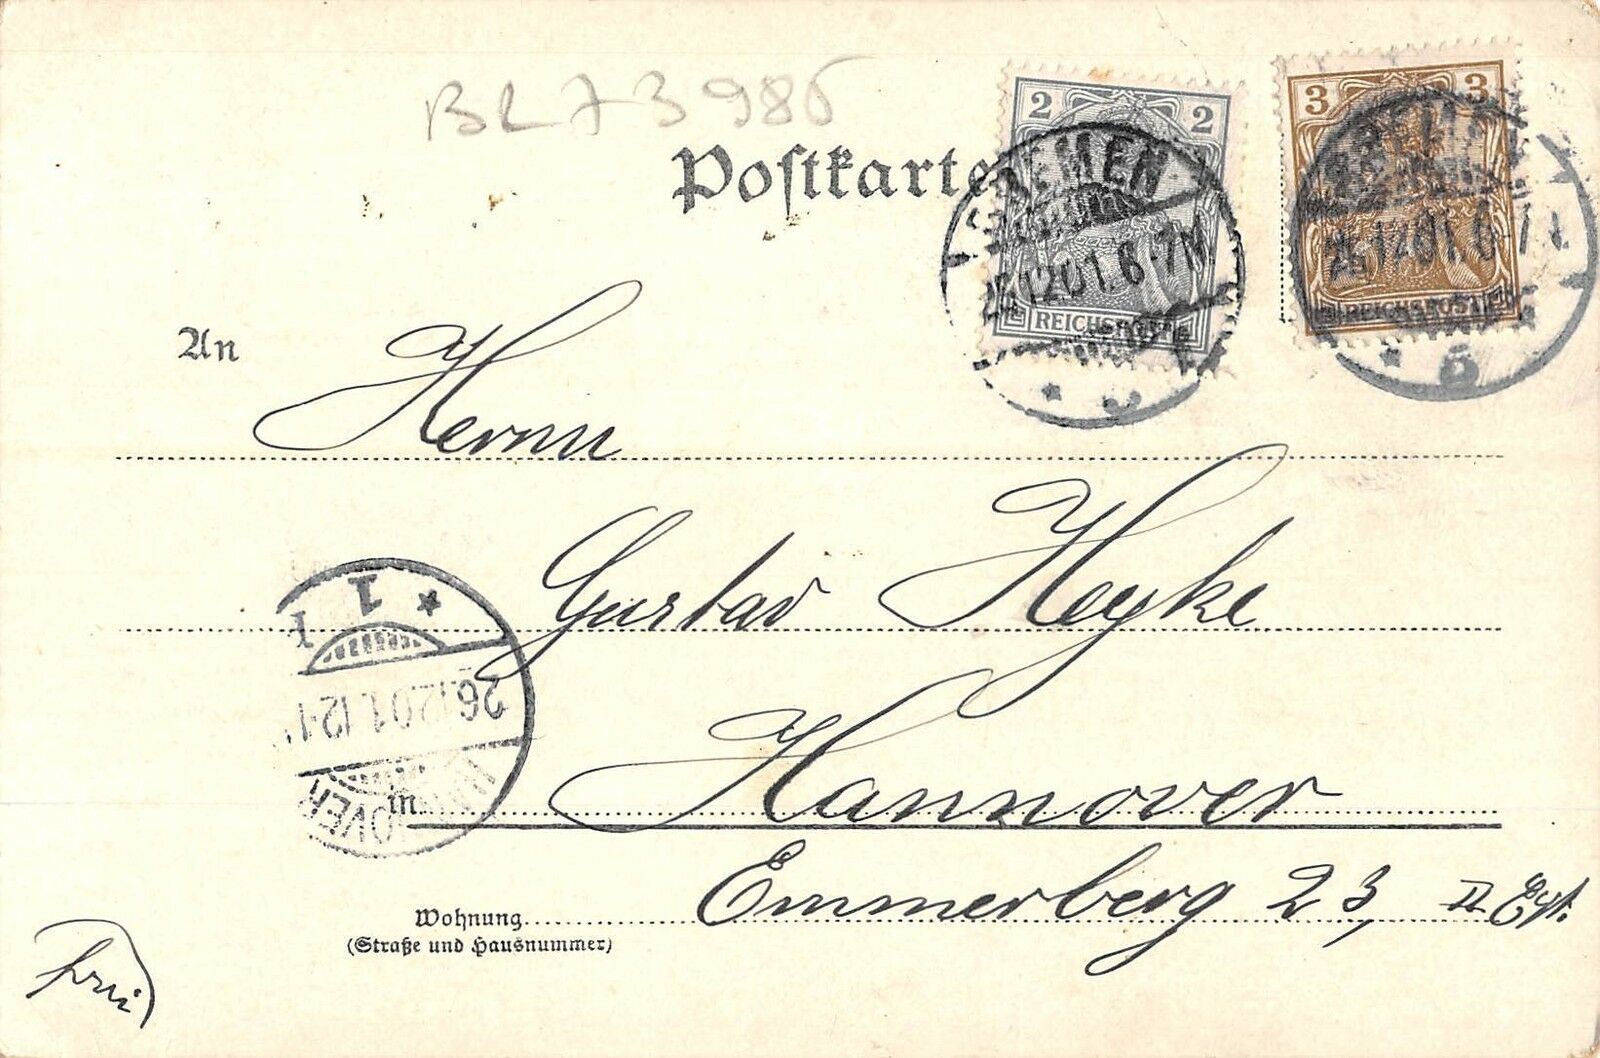 BL73986
Postkarte
2 2
BREMEN
25.12.01.6-7N
REICHSPOST
3 3
25.12.01.6-7
REICHSPOST
* 5
An
Herrn
Gustav Heyke
1 *
26.12.01.12-1
HANNOVER
in Hannover
Emmerberg 23, II Etg.
Wohnung
(Straße und Hausnummer)